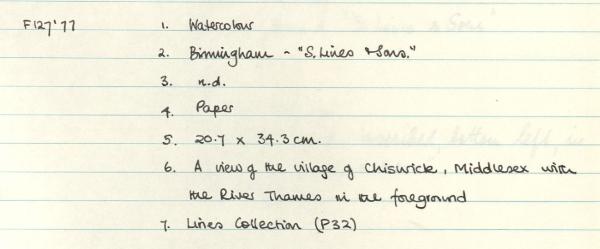 F127'77 1. Watercolour
2. Birmingham - "S. Lines & Sons."
3. n.d.
4. Paper
5. 20.7 x 34.3 cm.
6. A view of the village of Chiswick, Middlesex with
the River Thames in the foreground
7. Lines Collection (P32)